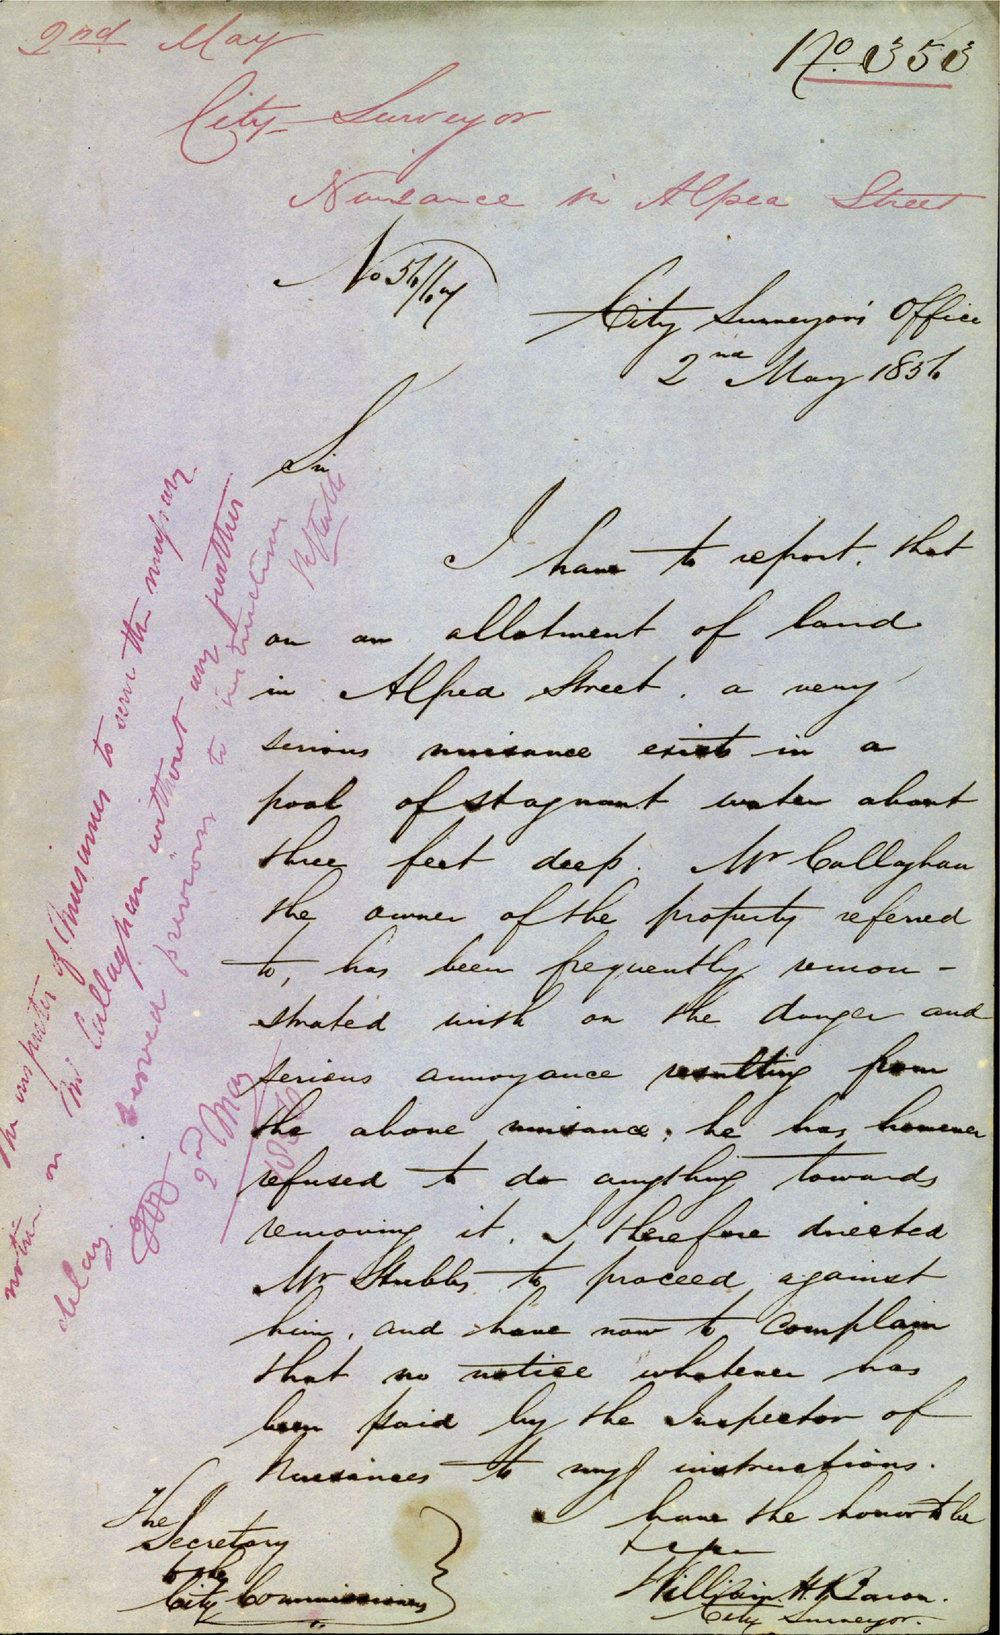 2nd May
No. 353
City Surveyor
Nuisance in Alpea Street
No 56/67
City Surveyor's Office
2nd May 1856
Sir
I have to report, that
on an allotment of land
in Alpea Street, a very
serious nuisance exists in a
pool of stagnant water about
three feet deep. Mr Callaghan
the owner of the property referred
to, has been frequently remon-
strated with on the danger and
serious annoyance resulting from
the above nuisance, he has however
refused to do anything towards
removing it. I therefore directed
Mr Stubbs to proceed against
him, and have now to complain
that no notice whatever has
been paid by the Inspector of
Nuisances to my instructions.
I have the honor to be
William H. Baron.
City Surveyor.
The
Secretary
to the
City Commissioners
The inspector of Nuisances to serve the necessary
notice on Mr Callaghan without any further
delay
served previous to instructions
2nd May